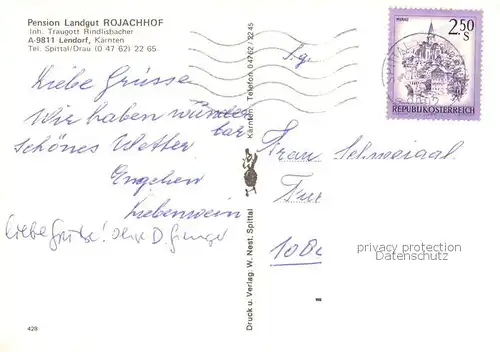 Pension Landgut ROJACHHOF
Inh. Traugott Rindlisbacher
A-9811 Lendorf, Kärnten
Tel. Spittal/Drau (0 47 62) 22 65
Liebe Grüsse
Wir haben wunder
bar
schönes Wetter
Engehen
Liebenwein
Liebe Grüße!
428
Druck u. Verlag: W. Nest, Spittal
Kärnten, Telefon 04762/3245
MURAU
2.50
S
REPUBLIK ÖSTERREICH
S.g.
Frau Schmeisal
privacy protection
www.oldthing.com